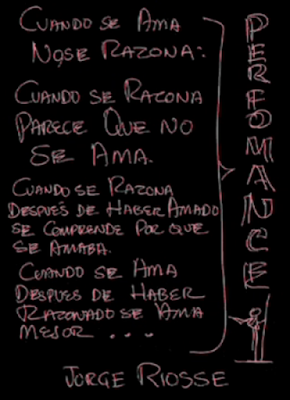 CUANDO SE AMA
NOSE RAZONA:
CUANDO SE RAZONA
PARECE QUE NO
SE AMA.
CUANDO SE RAZONA
DESPUÉS DE HABER AMADO
SE COMPRENDE POR QUE
SE AMABA.
CUANDO SE AMA
DESPUES DE HABER
RAZONADO SE AMA
MEJOR ...
JORGE RIOSSE
PERFOMANCE